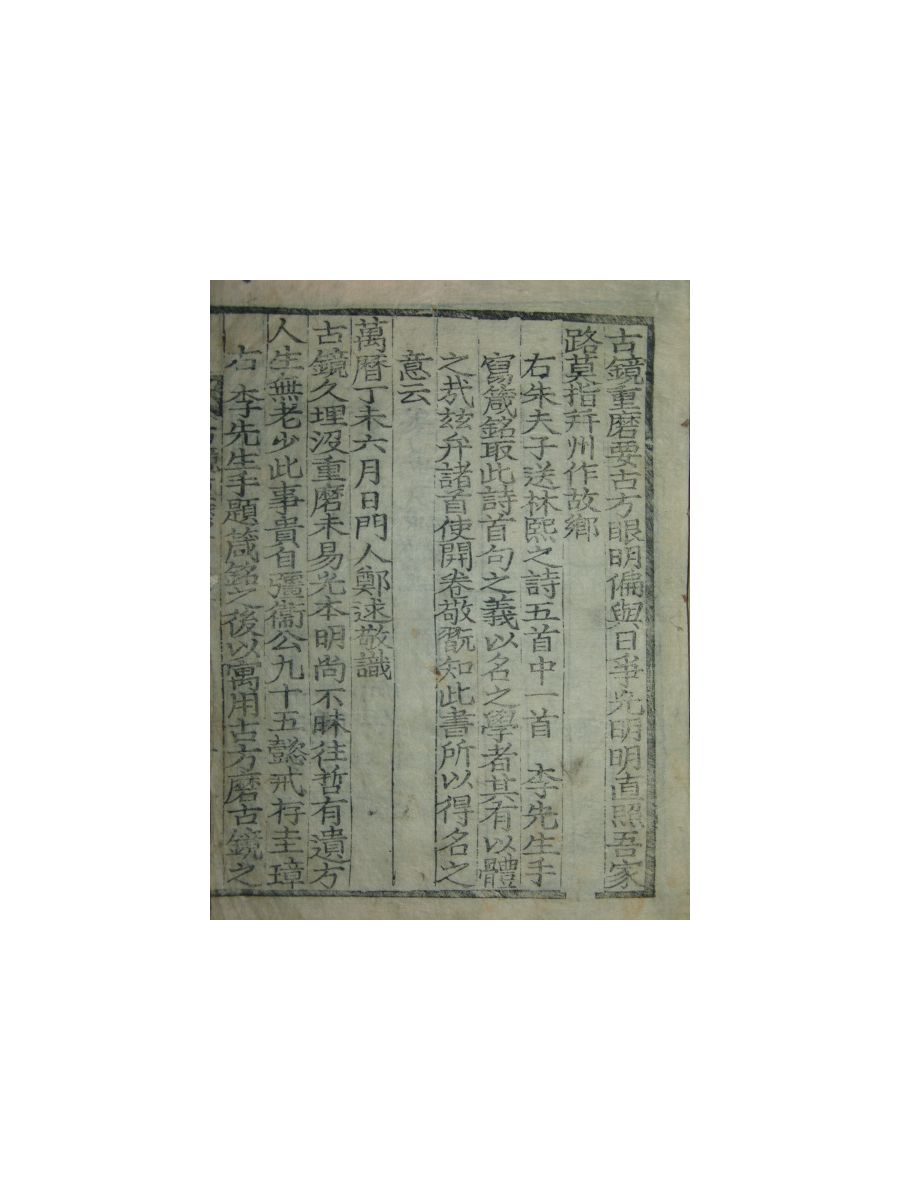 古鏡重磨要古方眼明偏與日爭光明明直照吾家
路莫指幷州作故鄉
右朱夫子送林熙之詩五首中一首　李先生手
寫箴銘取此詩首句之義以名之學者其有以體
之㦲玆弁諸首使開卷敬翫知此書所以得名之
意云
萬曆丁未六月日門人鄭逑敬識
古鏡久埋沒重磨未易光本明尙不昧往哲有遺方
人生無老少此事貴自彊衞公九十五懿戒存圭璋
右　李先生手題箴銘之後以寓用古方磨古鏡之